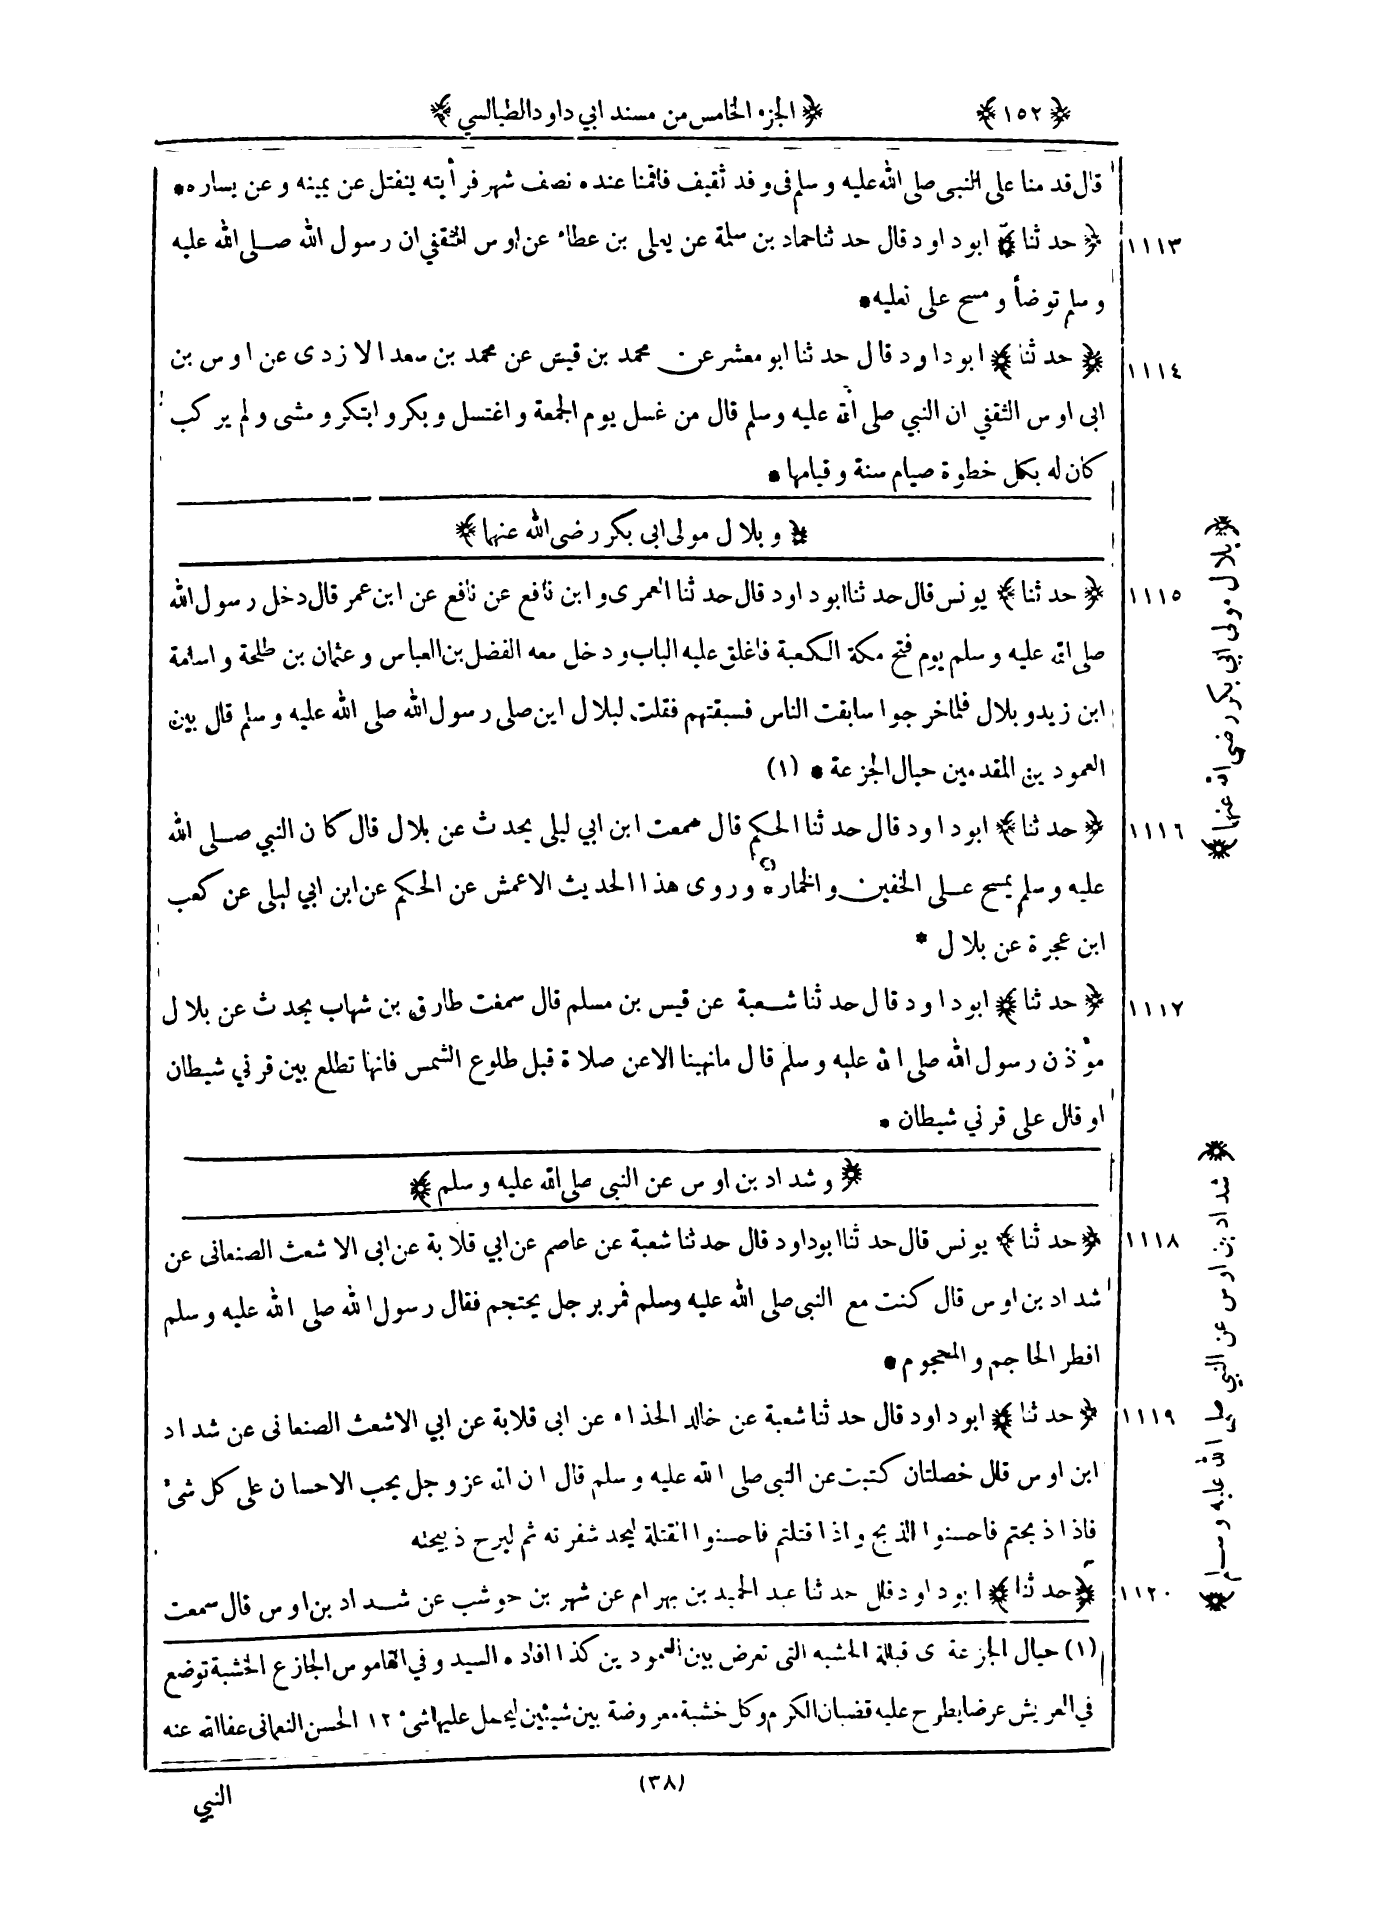 ﴿ ١٥٢ ﴾ ﴿ الجزء الخامس من مسند ابي داود الطيالسي ﴾
قال قد منا على النبي صلى الله عليه وسلم في وفد ثقيف فاقمنا عنده نصف شهر فرأيته ينفتل عن يمينه وعن يساره •
١١١٣ ﴿ حدثنا ﴾ ابو داود قال حدثنا حماد بن سلمة عن يعلى بن عطاء عن اوس الثقفي ان رسول الله صلى الله عليه
وسلم توضأ ومسح على نعليه •
١١١٤ ﴿ حدثنا ﴾ ابو داود قال حدثنا ابو معشر عن محمد بن قيس عن محمد بن سعد الازدى عن اوس بن
ابى اوس الثقفي ان النبي صلى الله عليه وسلم قال من غسل يوم الجمعة واغتسل وبكر وابتكر ومشى ولم يركب
كان له بكل خطوة صيام سنة وقيامها •
﴿ وبلال مولى ابى بكر رضى الله عنهما ﴾
﴿ بلال مولى ابي بكر رضى الله عنهما ﴾
١١١٥ ﴿ حدثنا ﴾ يونس قال حدثنا ابو داود قال حدثنا العمرى وابن نافع عن نافع عن ابن عمر قال دخل رسول الله
صلى الله عليه وسلم يوم فتح مكة الكعبة فاغلق عليه الباب ودخل معه الفضل بن العباس وعثمان بن طلحة واسامة
ابن زيد وبلال فلما خرجوا سابقت الناس فسبقتهم فقلت لبلال اين صلى رسول الله صلى الله عليه وسلم قال بين
العمودين المقدمين حيال الجزعة • (١)
١١١٦ ﴿ حدثنا ﴾ ابو داود قال حدثنا الحكم قال سمعت ابن ابي ليلى يحدث عن بلال قال كان النبي صلى الله
عليه وسلم يمسح على الخفين والخمار وروى هذا الحديث الاعمش عن الحكم عن ابن ابي ليلى عن كعب
ابن عجرة عن بلال *
١١١٧ ﴿ حدثنا ﴾ ابو داود قال حدثنا شعبة عن قيس بن مسلم قال سمعت طارق بن شهاب يحدث عن بلال
مؤذن رسول الله صلى الله عليه وسلم قال مانهينا الا عن صلاة قبل طلوع الشمس فانها تطلع بين قرني شيطان
او قال على قرني شيطان •
﴿ وشداد بن اوس عن النبي صلى الله عليه وسلم ﴾
﴿ شداد بن اوس عن النبي صلى الله عليه وسلم ﴾
١١١٨ ﴿ حدثنا ﴾ يونس قال حدثنا ابو داود قال حدثنا شعبة عن عاصم عن ابي قلابة عن ابى الاشعث الصنعانى عن
شداد بن اوس قال كنت مع النبي صلى الله عليه وسلم فمر برجل يحتجم فقال رسول الله صلى الله عليه وسلم
افطر الحاجم والمحجوم •
١١١٩ ﴿ حدثنا ﴾ ابو داود قال حدثنا شعبة عن خالد الحذاء عن ابى قلابة عن ابي الاشعث الصنعانى عن شداد
ابن اوس قال خصلتان كتبت عن النبي صلى الله عليه وسلم قال ان الله عز وجل يحب الاحسان على كل شئ
فاذا ذبحتم فاحسنوا الذبح واذا قتلتم فاحسنوا القتلة ليحد شفرته ثم ليرح ذبيحته
١١٢٠ ﴿ حدثنا ﴾ ابو داود قال حدثنا عبد الحميد بن بهرام عن شهر بن حوشب عن شداد بن اوس قال سمعت
(١) حيال الجزعة ى قبالة الخشبه التى تعرض بين العمودين كذا افاده السيد وفي القاموس الجازع الخشبة توضع
في العريش عرضا يطرح عليه قضبان الكرم وكل خشبة معروضة بين شيئين ليحمل عليها شئ ١٢ الحسن النعمانى عفا الله عنه
(٣٨)
النبي